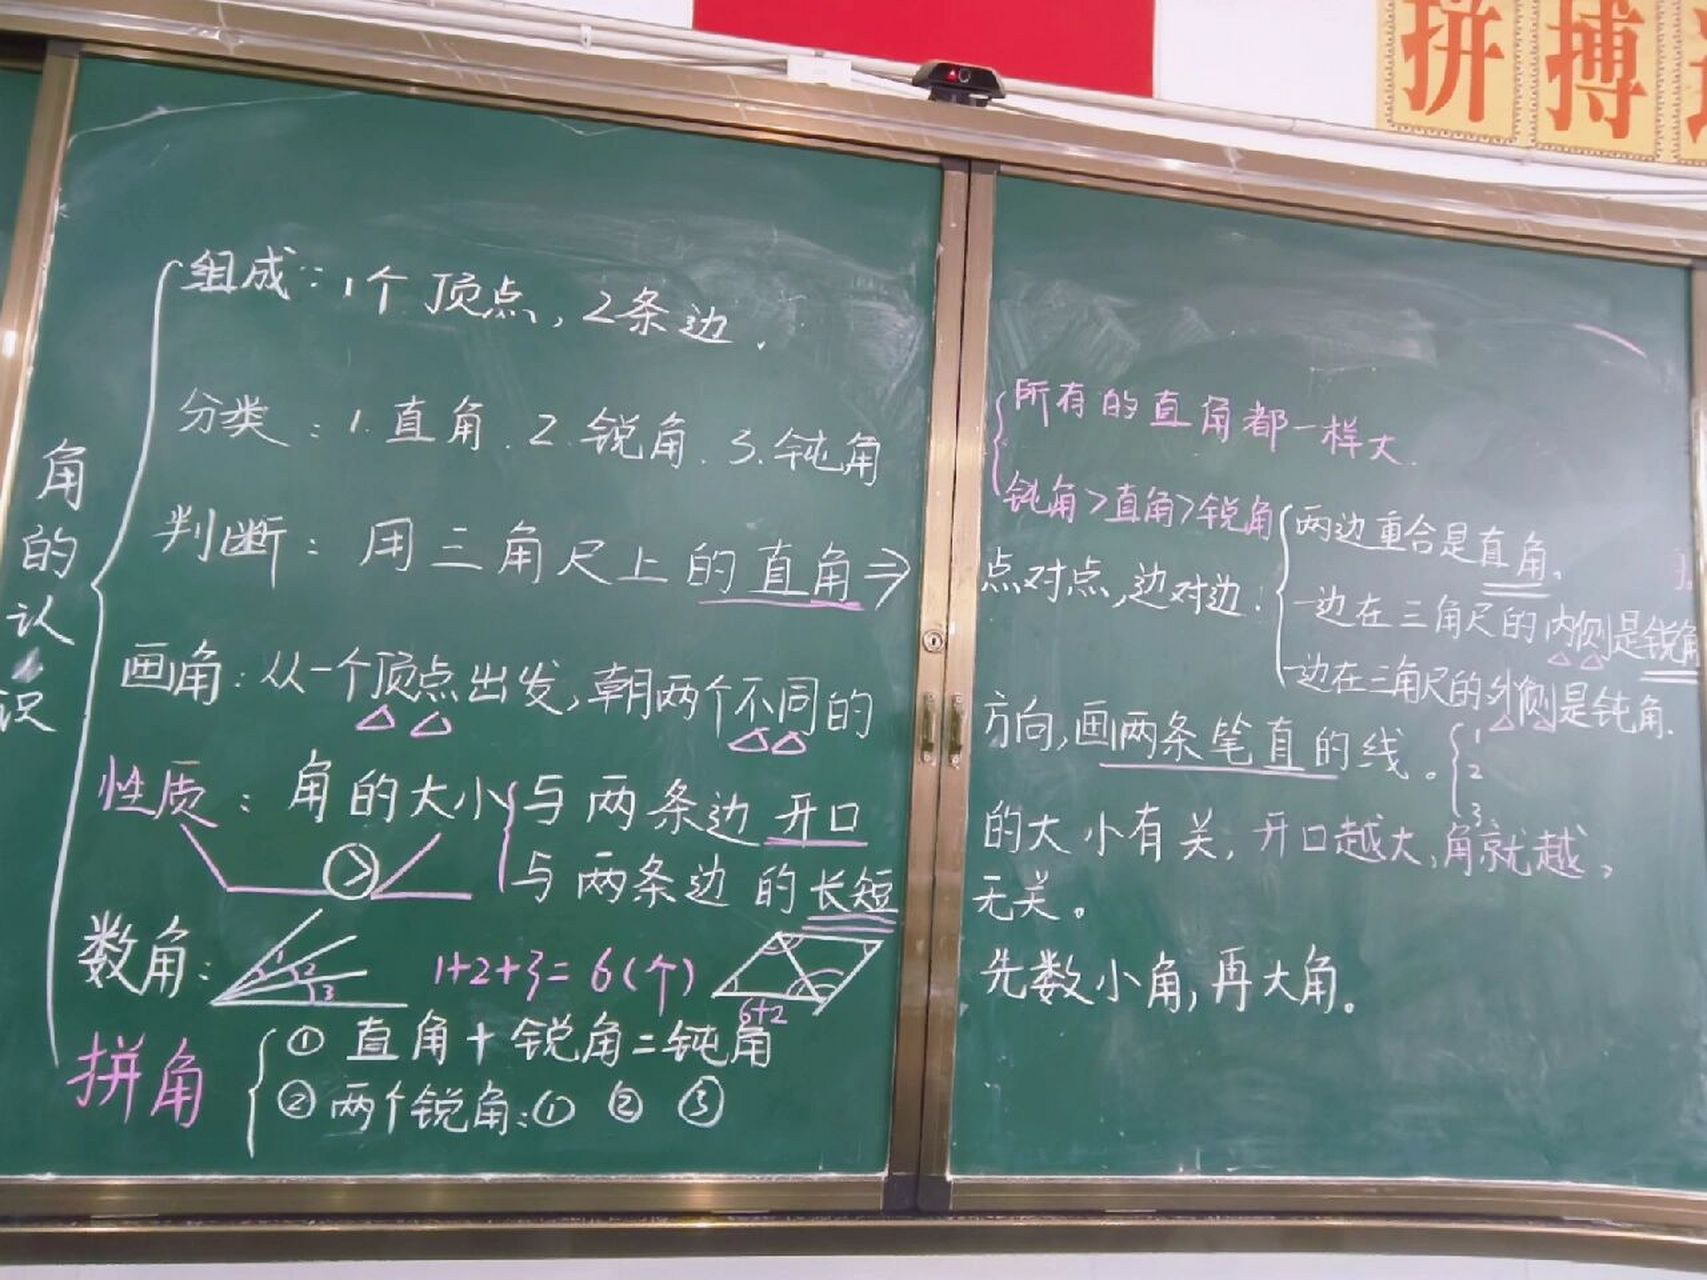 拼搏
角的认识
组成：1个顶点，2条边.
分类：1.直角.2.锐角.3.钝角
所有的直角都一样大.
钝角>直角>锐角
判断：用三角尺上的直角⇒点对点，边对边：
两边重合是直角.
一边在三角尺的内侧是锐角
一边在三角尺的外侧是钝角.
画角：从一个顶点出发，朝两个不同的方向，画两条笔直的线。
1
2
3.
性质：角的大小
与两条边开口的大小有关，开口越大，角就越,
与两条边的长短无关。
>
数角：
1 2 3
1+2+3=6(个)
6+2
先数小角，再大角。
拼角
①直角+锐角=钝角
②两个锐角：① ② ③